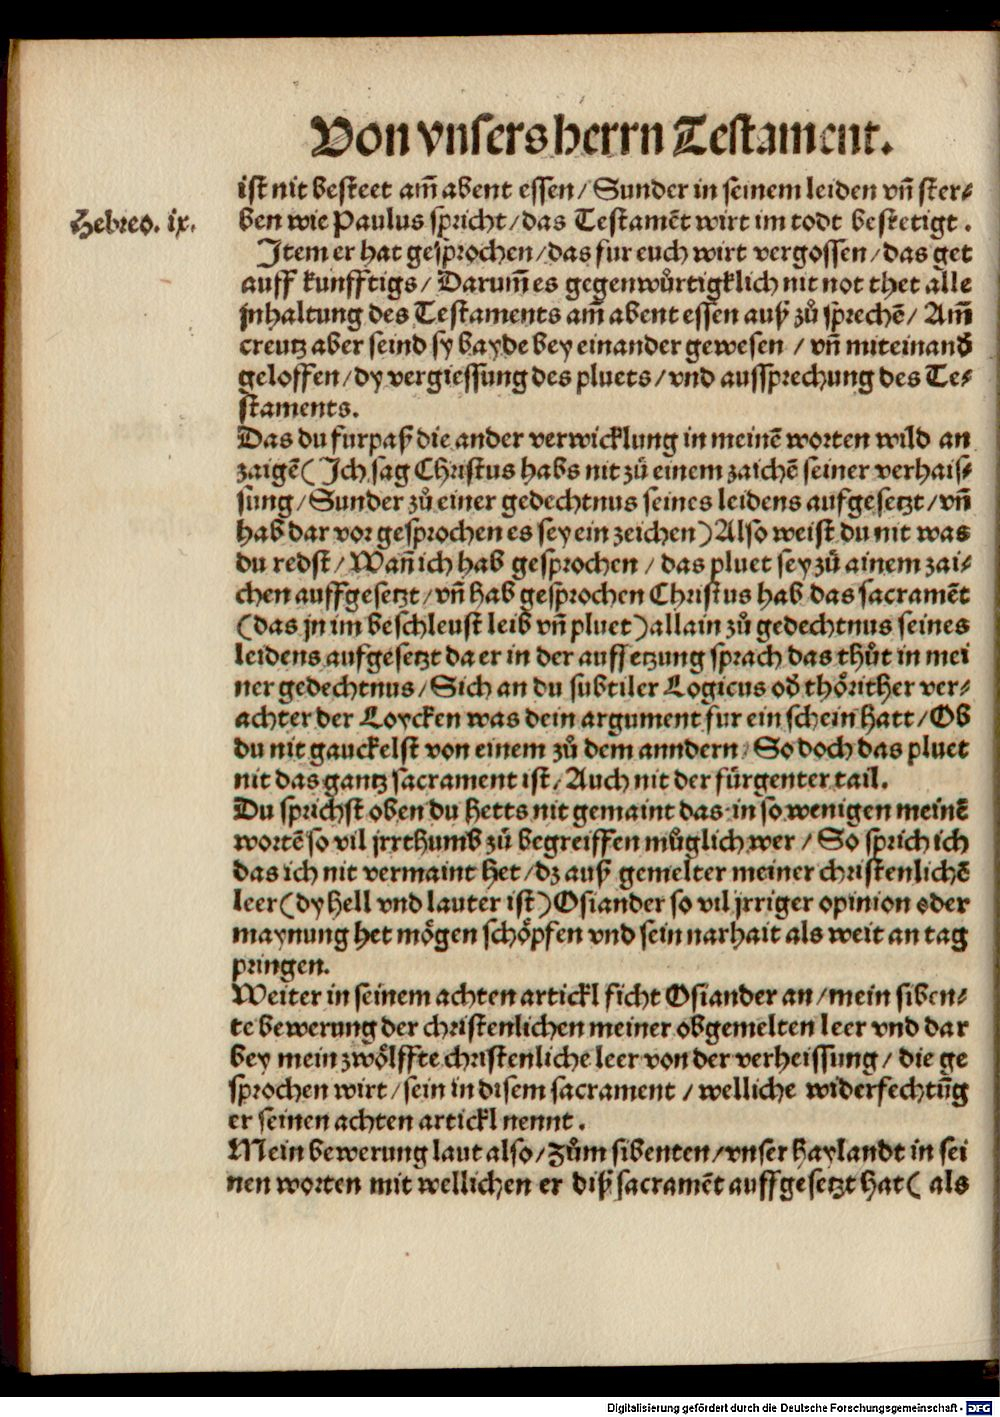 Von vnsers herrn Testament.
ist nit besteet am̃ abent essen / Sunder in seinem leiden vñ ster⸗
Hebreo. ix.
ben wie Paulus spricht / das Testamẽt wirt im todt bestetigt .
Item er hat gesprochen / das fur euch wirt vergossen / das get
auff kunfftigs / Darum̃ es gegenwůrtigklich nit not thet alle
jnhaltung des Testaments am̃ abent essen auß zů sprechẽ / Am̃
creutz aber seind sy bayde bey einander gewesen / vñ miteinand̕
geloffen / dy vergiessung des pluets / vnd aussprechung des Te⸗
staments.
Das du furpaß die ander verwicklung in meinẽ worten wild an
zaigẽ ( Ich sag Christus habs nit zů einem zaichẽ seiner verhais⸗
sung / Sunder zů einer gedechtnus seines leidens aufgesetzt / vñ
hab dar vor gesprochen es sey ein zeichen ) Also weist du nit was
du redst / Wañ ich hab gesprochen / das pluet sey zů ainem zai⸗
chen auffgesetzt / vñ hab gesprochen Christus hab das sacramẽt
( das jn im beschleust leib vñ pluet ) allain zů gedechtnus seines
leidens aufgesetzt da er in der auffsetzung sprach das thůt in mei
ner gedechtnus / Sich an du subtiler Logicus od̕ thoͤrither ver⸗
achter der Loycken was dein argument fur ein schein hatt / Ob
du nit gauckelst von einem zů dem anndern / So doch das pluet
nit das gantz sacrament ist / Auch nit der fürgenter tail.
Du sprichst oben du hetts nit gemaint das in so wenigen meinẽ
wortẽ so vil jrrthumb zů begreiffen můglich wer / So sprich ich
das ich nit vermaint het / dz auß gemelter meiner christenlichẽ
leer ( dy hell vnd lauter ist ) Osiander so vil jrriger opinion oder
maynung het moͤgen schoͤpfen vnd sein narhait als weit an tag
pringen.
Weiter in seinem achten artickl ficht Osiander an / mein siben⸗
te bewerung der christenlichen meiner obgemelten leer vnd dar
bey mein zwoͤlffte christenliche leer von der verheissung / die ge
sprochen wirt / sein in disem sacrament / welliche widerfechtũg
er seinen achten artickl nennt .
Mein bewerung laut also / Zům sibenten / vnser haylandt in sei
nen worten mit wellichen er diß sacramẽt auffgesetzt hat ( als
Digitalisierung gefördert durch die Deutsche Forschungsgemeinschaft - DFG